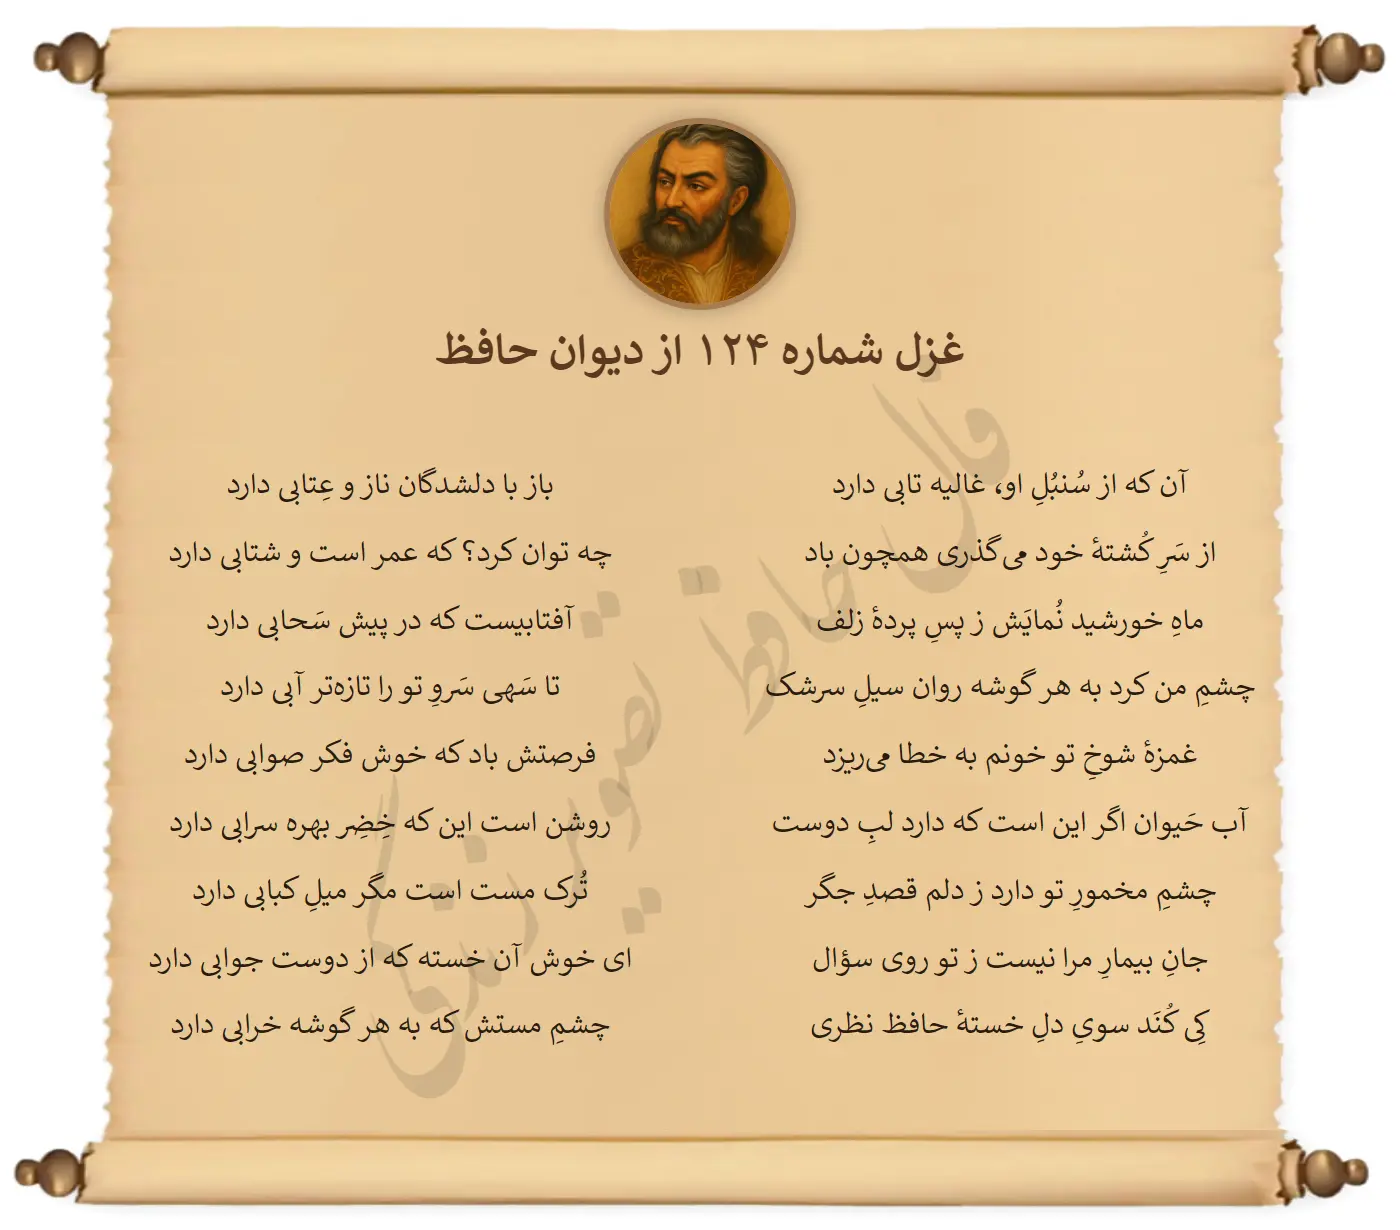 غزل شماره ۱۲۴ از دیوان حافظ
آن که از سُنبُلِ او، غالیه تابی دارد
باز با دلشدگان ناز و عِتابی دارد
از سَرِ کُشتهٔ خود می‌گذری همچون باد
چه توان کرد؟ که عمر است و شتابی دارد
ماهِ خورشید نُمایَش ز پسِ پردهٔ زلف
آفتابیست که در پیش سَحابی دارد
چشمِ من کرد به هر گوشه روان سیلِ سرشک
تا سَهی سَروِ تو را تازه‌تر آبی دارد
غمزهٔ شوخِ تو خونم به خطا می‌ریزد
فرصتش باد که خوش فکر صوابی دارد
آب حَیوان اگر این است که دارد لبِ دوست
روشن است این که خِضِر بهره سرابی دارد
چشمِ مخمورِ تو دارد ز دلم قصدِ جگر
تُرک مست است مگر میلِ کبابی دارد
جانِ بیمارِ مرا نیست ز تو روی سؤال
ای خوش آن خسته که از دوست جوابی دارد
کِی کُنَد سویِ دلِ خستهٔ حافظ نظری
چشمِ مستش که به هر گوشه خرابی دارد
فال حافظ تصویر زندگی